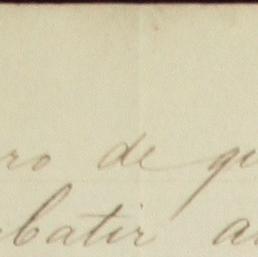 ro de qu
batir a